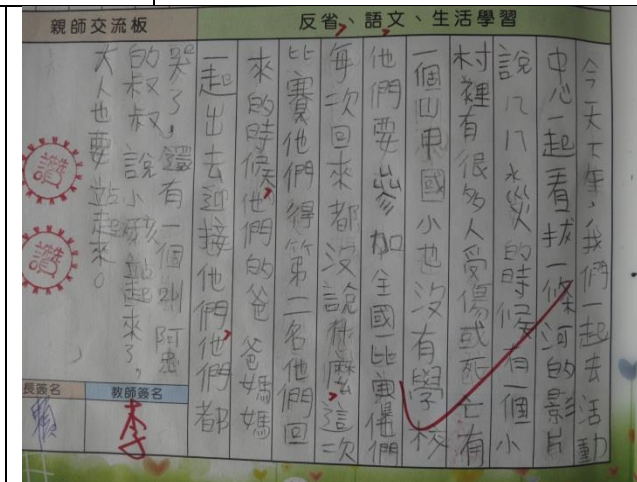 親師交流板
反省、語文、生活學習
今天下午，我們一起去活動
中心一起看拔一條河的影片
說八八水災的時候有一個小
村裡有很多人受傷或死亡有
一個山甲國小也沒有學校
他們要參加全國比賽他們
每次回來都沒說什麼，這次
比賽他們得第二名他們回
來的時候，他們的爸爸媽媽
一起出去迎接他們，他們都
哭了，還有一個叫阿忠
的叔叔說小孩站起來了，
大人也要站起來。
讚
讚
長簽名
教師簽名
李